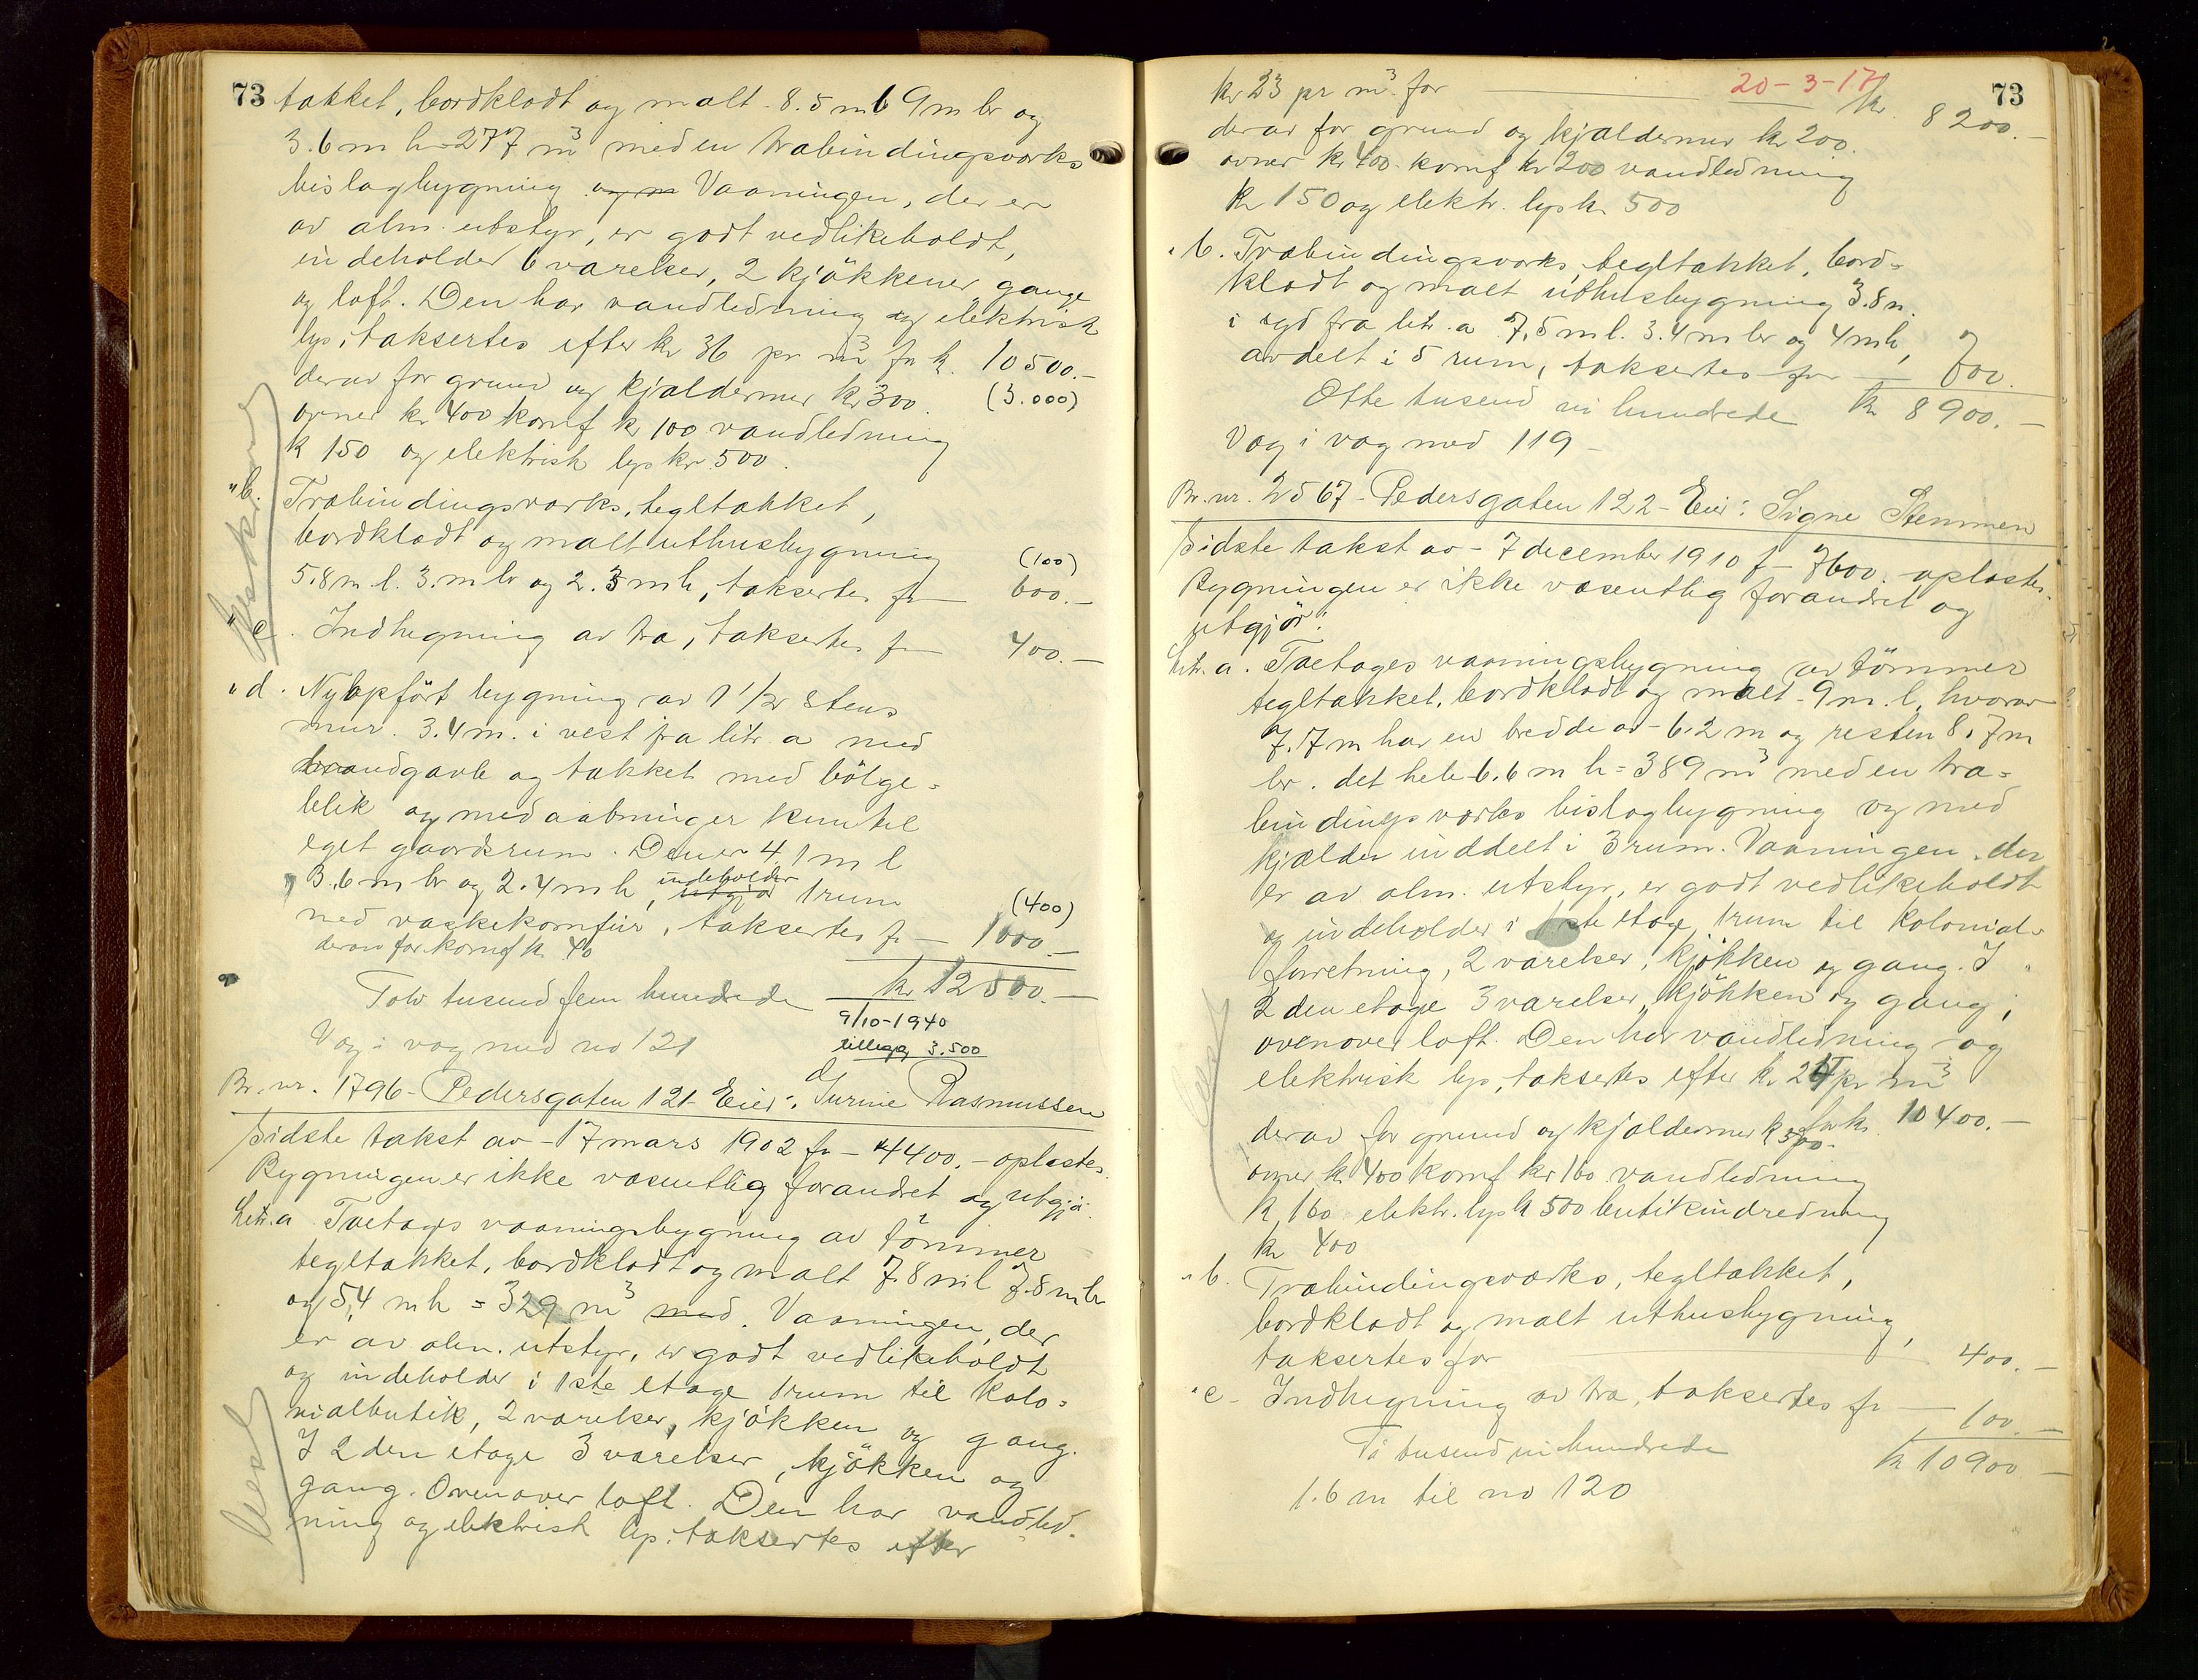 73
takket, bordklædt og malt. 8.5 m l 9 m br og
3.6 m h = 277 m³ med en træbindingsværks
bislagbygning og m Vaaningen, der er
av alm. utstyr, er godt vedlikeholdt,
indeholder 6 værelser, 2 kjökkener gange
og loft. Den har vandledning og elektrisk
lys, taksertes efter kr 36 pr m³ for k. 10500.-
derav for grund og kjældermur kr 300. (3.000)
ovner kr 400 komf kr 100 vandledning
k 150 og elektrisk lys kr 500.
" b. Træbindingsværks, tegltakket,
bordklædt og malt uthusbygning (100)
5.8 m l. 3. m br og 2.3 m h, taksertes for 600.-
" c. Indhegning av træ, taksertes for 400.-
" d. Nyopfört bygning av 1 1/2 stens
mur. 3.4 m. i vest fra litr. a med
brandgavle og takket med bölge-
blik og med aabninger kun til
eget gaardsrum. Den er 4.1 m l
3.6 m br og 2.4 m h, utgjør indeholder 1 rum (400)
med vaskekomfür, taksertes for 1000.-
derav for komf k. 40
Tolv tusend fem hundrede kr 12500.-
9/10-1940
tillegg 3.500
Væg i væg med no 121
Br. nr. 1796 - Pedersgaten 121 - Eier: Jurine Rasmussen
Sidste takst av - 17 mars 1902 for - 4400.- oplæstes.
Bygningen er ikke væsentlig forandret og utgjör:
Litr. a Toetages vaaningsbygning av tömmer
tegltakket, bordklædt og malt 7.8 m l 7.8 m br
og 5,4 m h = 329 m³ med. Vaaningen, der
er av alm. utstyr, er godt vedlikeholdt
og indeholder i 1ste etage 1 rum til kolo-
nialbutik, 2 værelser, kjökken og gang.
I 2den etage 3 værelser, kjökken og
gang. Ovenover loft. Den har vandled-
ning og elektrisk lys, taksertes efter
73
20-3-17
kr 23 pr m³ for kr. 8200.-
derav for grund og kjældermur kr 200.
ovner kr 400 komf kr 200 vandledning
kr 150 og elektr. lys kr. 500
" b. Træbindingsværks, tegltakket, bord-
klædt og malt uthusbygning 3.8 m.
i syd fra litr. a 7,5 m l. 3.4 m br og 4 m h,
avdelt i 5 rum, taksertes for 700.
Otte tusend ni hundrede kr 8900.-
Væg i væg med 119 -
Br. nr. 2567 - Pedersgaten 122 - Eier: Signe Stemmen
Sidste takst av - 7 december 1910 f - 7600. oplæstes.
Bygningen er ikke væsentlig forandret og
utgjör:
Litr. a. Toetages vaaningsbygning av tömmer
tegltakket, bordklædt og malt - 9 m. l, hvorav
7.7 m har en bredde av - 6.2 m og resten 8.7 m
br. det hele 6.6 m h = 389 m³ med en træ-
bindingsværks bislagbygning og med
kjælder inddelt i 3 rum. Vaaningen, der
er av alm. utstyr, er godt vedlikeholdt
og indeholder i 1ste etage, 1 rum til kolonial-
forretning, 2 værelser, kjökken og gang. I
2den etage 3 værelser, kjökken og gang;
ovenover loft. Den har vandledning og
elektrisk lys, taksertes efter kr. 27 pr m³
for kr. 10400.-
derav for grund og kjældermur k 500.-
ovner kr 400 komf kr 100 vandledning
k 160 elektr. lys k 500 butikindredning
kr 400
" b. Træbindingsværks, tegltakket,
bordklædt og malt uthusbygning,
taksertes for 400.-
" c - Indhegning av træ, taksertes for 100.-
Ti tusend ni hundrede kr 10900 -
1.6 m til no 120